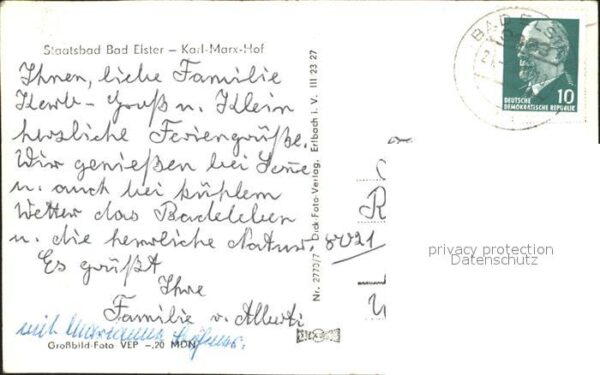 Staatsbad Bad Elster – Karl-Marx-Hof
Ihnen, liebe Familie
Kewb - Groß u. Klein
herzliche Feriengrüße.
Wir genießen bei Sonne
u. auch bei kühlem
Wetter das Badeleben
u. die herrliche Natur.
Es grüßt
Ihre
Familie v. Alberti
mit
Großbild-Foto VEP -,20 MDN
Nr. 2770/7 Dick-Foto-Verlag, Erlbach i. V. III 23 27
BAD ELST
10
DEUTSCHE
DEMOKRATISCHE REPUBLIK
8021
privacy protection
Datenschutz